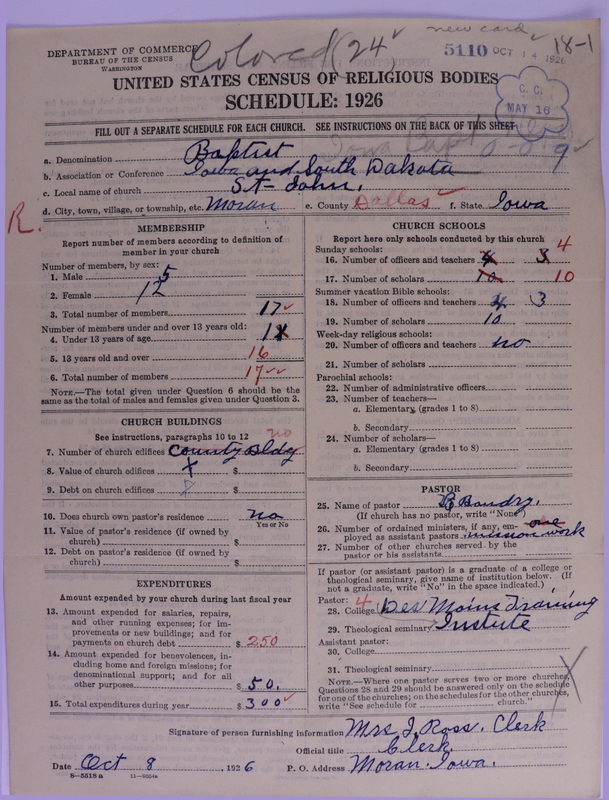 DEPARTMENT OF COMMERCE
BUREAU OF THE CENSUS
WASHINGTON
Colored (24
new card
18-1
5110 OCT 14 1926
UNITED STATES CENSUS OF RELIGIOUS BODIES
SCHEDULE: 1926
C. C.
MAY 16
FILL OUT A SEPARATE SCHEDULE FOR EACH CHURCH. SEE INSTRUCTIONS ON THE BACK OF THIS SHEET
a. Denomination Baptist
0-0-9
b. Association or Conference Iowa and South Dakota
c. Local name of church St-John.
d. City, town, village, or township, etc. Moran e. County Dallas f. State Iowa
R.
MEMBERSHIP
Report number of members according to definition of
member in your church
Number of members, by sex:
1. Male 5
2. Female 12
3. Total number of members 17
Number of members under and over 13 years old:
4. Under 13 years of age 1
5. 13 years old and over 16
6. Total number of members 17
NOTE.—The total given under Question 6 should be the
same as the total of males and females given under Question 3.
CHURCH BUILDINGS
See instructions, paragraphs 10 to 12
no
7. Number of church edifices County Bldg
8. Value of church edifices X $
9. Debt on church edifices $
10. Does church own pastor's residence no
Yes or No
11. Value of pastor's residence (if owned by
church) $
12. Debt on pastor's residence (if owned by
church) $
EXPENDITURES
Amount expended by your church during last fiscal year
13. Amount expended for salaries, repairs,
and other running expenses; for im-
provements or new buildings; and for
payments on church debt $ 250
14. Amount expended for benevolences, in-
cluding home and foreign missions; for
denominational support; and for all
other purposes $ 50.
15. Total expenditures during year $ 300
CHURCH SCHOOLS
Report here only schools conducted by this church
Sunday schools:
16. Number of officers and teachers 4 3 4
17. Number of scholars 10 10
Summer vacation Bible schools:
18. Number of officers and teachers 4 3
19. Number of scholars 10
Week-day religious schools:
20. Number of officers and teachers no
21. Number of scholars
Parochial schools:
22. Number of administrative officers
23. Number of teachers—
a. Elementary (grades 1 to 8)
b. Secondary
24. Number of scholars—
a. Elementary (grades 1 to 8)
b. Secondary
PASTOR
25. Name of pastor
(If church has no pastor, write "None")
26. Number of ordained ministers, if any, em- one
ployed as assistant pastors mission work
27. Number of other churches served by the
pastor or his assistants
If pastor (or assistant pastor) is a graduate of a college or
theological seminary, give name of institution below. (If
not a graduate, write "No" in the space indicated.)
Pastor: 4
28. College Des Moins Training
29. Theological seminary Instute
Assistant pastor:
30. College
31. Theological seminary
NOTE.—Where one pastor serves two or more churches,
Questions 28 and 29 should be answered only on the schedule
for one of the churches; on the schedules for the other churches,
write "See schedule for church."
X
Signature of person furnishing information Mrs J. Ross. Clerk
Official title Clerk.
Date Oct 8, 1926 P. O. Address Moran. Iowa.
8-5518 a 11-9224a